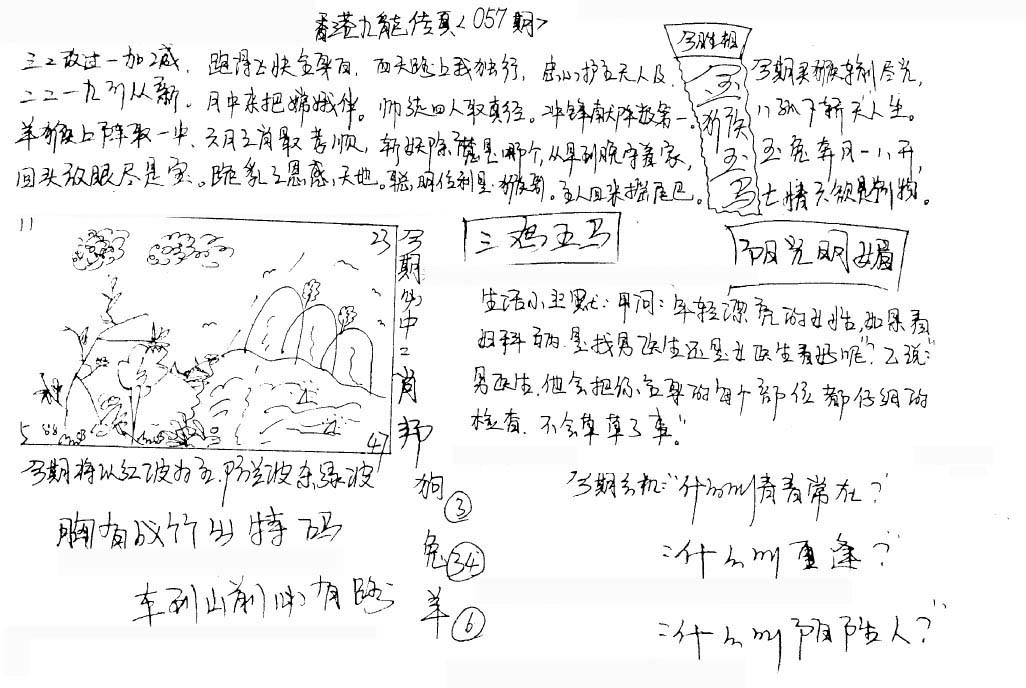 香港九龙传真<057期>
三二改过一加2减，跑得上快全身白，西天路上我独行，忠心护主无人及
二二一九可从新。月中亲把嫦娥伴。师徒四人取真经。冲锋献阵数第一。
羊猴上阵取一中，六月三肖最苦顺，斩妖除魔是哪个，从早到晚守着家，
回头放眼尽是宝。跪乳之恩感天地。聪明伶利是猴哥。主人回来摇尾巴。
今期生相
金猴玉马
今期买猴到尽光，
八 天人生。
玉兔奔月一八开，
七情六欲是
11
23
5
47
今期必中二肖邦
狗③
兔㉞
羊⑥
三鸡五马
阳光明媚
生活小幽默：甲问：年轻漂亮的女性，如果看
妇科病，是找男医生还是女医生看好呢"？乙说："
男医生，他会把你全身的每个部位都仔细的
检查，不会草草了事。"
今期将以红波为主，防兰波杂绿波
胸有成竹出特码
车到山前必有路
今期玄机："什么叫青春常在？"
："什么叫重逢？"
："什么叫阴阳人？"